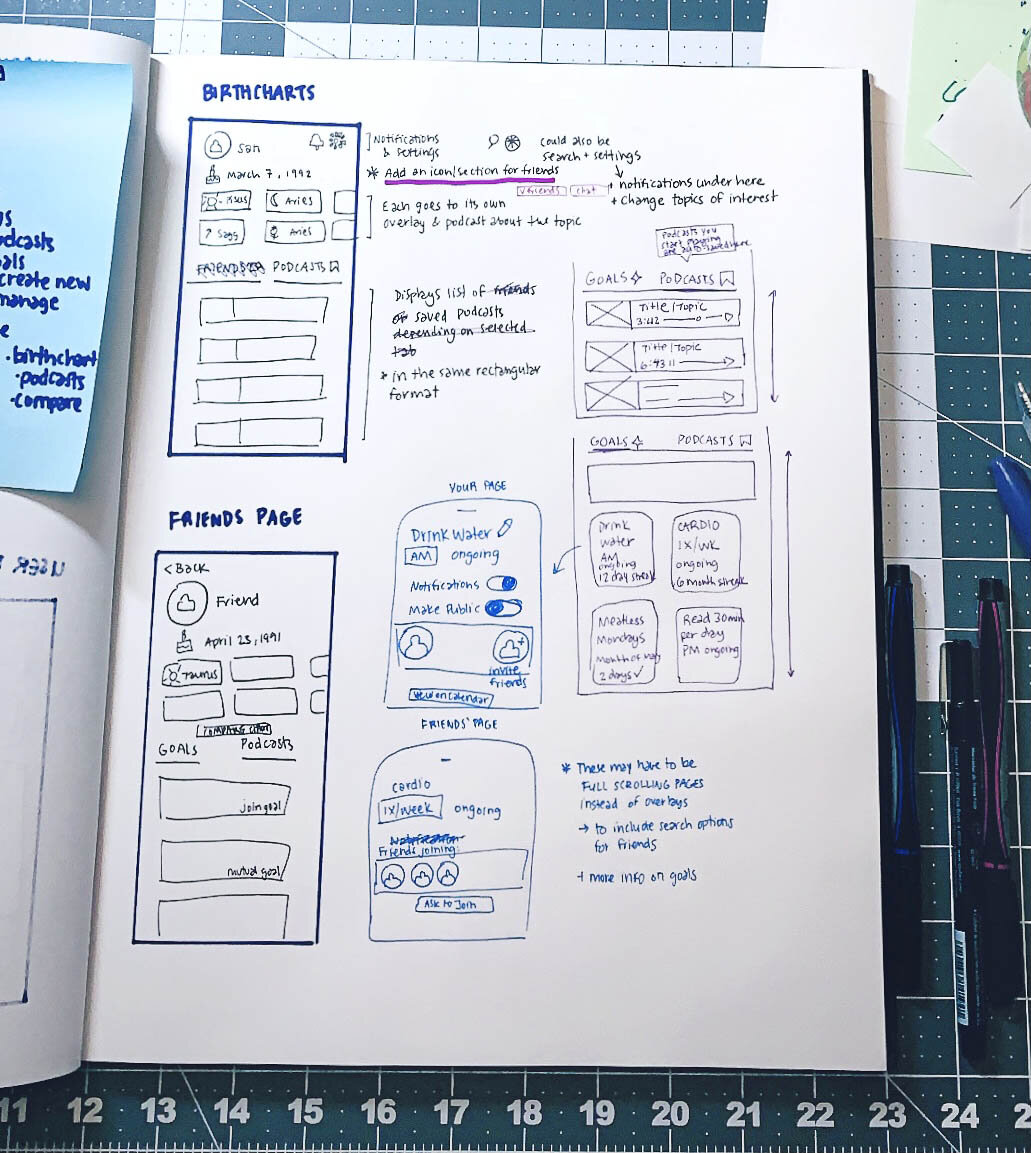 BIRTHCHARTS
San
March 7, 1992
Pisces
Aries
Sagg
Aries
FRIENDS
PODCASTS
Notifications
& settings
could also be
search + settings
* Add an icon/section for friends
friends
chat
+ notifications under here
+ change topics of interest
Each goes to its own
overlay & podcast about the topic
Displays list of friends
or saved podcasts
depending on selected
tab
* in the same rectangular
format
Podcasts you
start playing
are auto-saved here
GOALS
PODCASTS
Title/Topic
3:42
Title/Topic
6:43
GOALS
PODCASTS
Drink
water
AM
ongoing
12 day streak
CARDIO
1X/WK
ongoing
6 month streak
Meatless
Mondays
Month of May
2 days ✓
Read 30min
per day
PM ongoing
YOUR PAGE
Drink Water
AM
ongoing
Notifications
Make Public
invite
friends
View on Calendar
FRIENDS PAGE
< Back
Friend
April 23, 1991
Taurus
COMPARE CHART
GOALS
Podcasts
join goal
mutual goal
FRIENDS' PAGE
cardio
1X/week
ongoing
Notification
Friends joining:
Ask to Join
* These may have to be
FULL SCROLLING PAGES
instead of overlays
→ to include search options
for friends
+ more info on goals
create new
manage
· birthchart
· podcasts
· compare
11 12 13 14 15 16 17 18 19 20 21 22 23 24